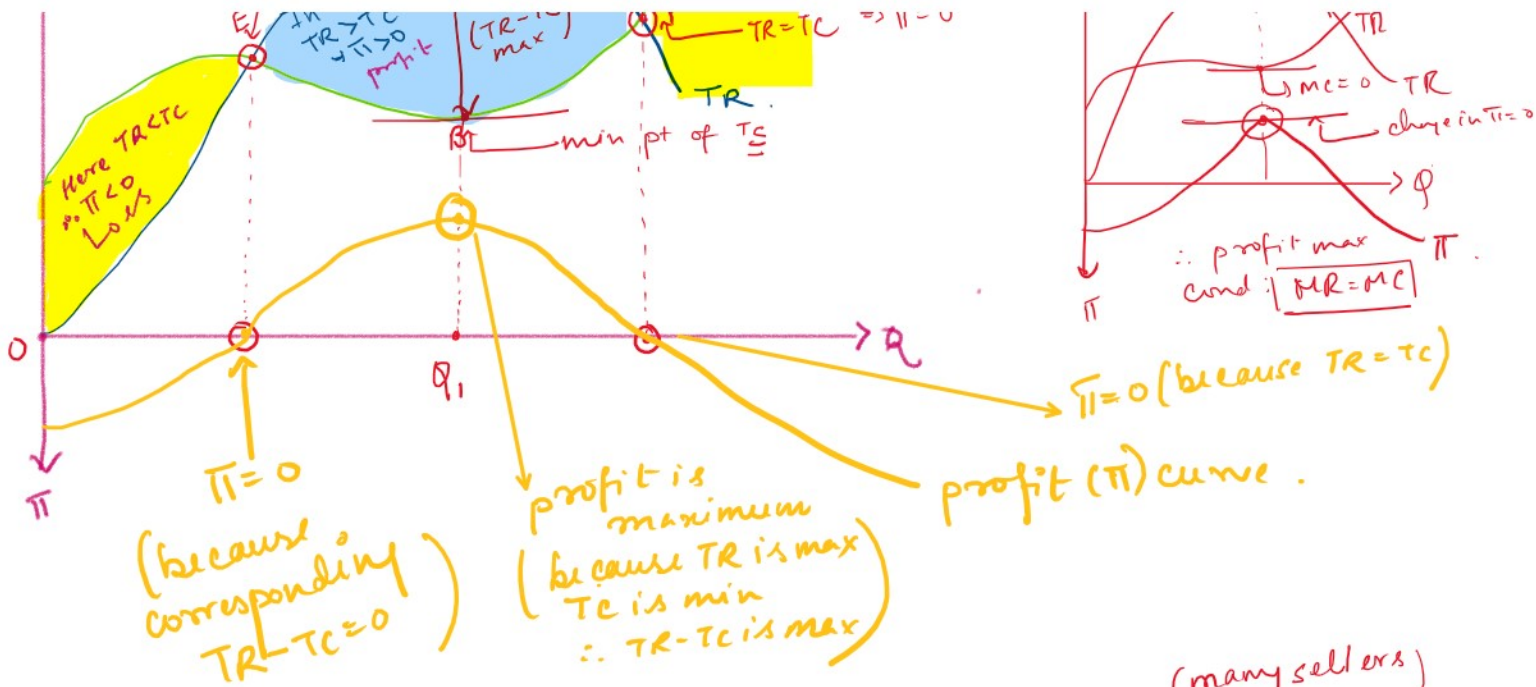 E
TR>TC
→ π>0
profit
(TR-TC)
max
TR=TC ⇒ π=0
TR.
B
min pt of TC
Here TR<TC
∴ π<0
Loss
O
Q1
Q
π
π=0
(because
corresponding
TR-TC=0)
profit is
maximum
(because TR is max
TC is min
∴ TR-TC is max)
π=0 (because TR=TC)
profit (π) curve.
TR
TR
MC=0
change in π=0
Q
π.
π
∴ profit max
cond: MR=MC
(many sellers)